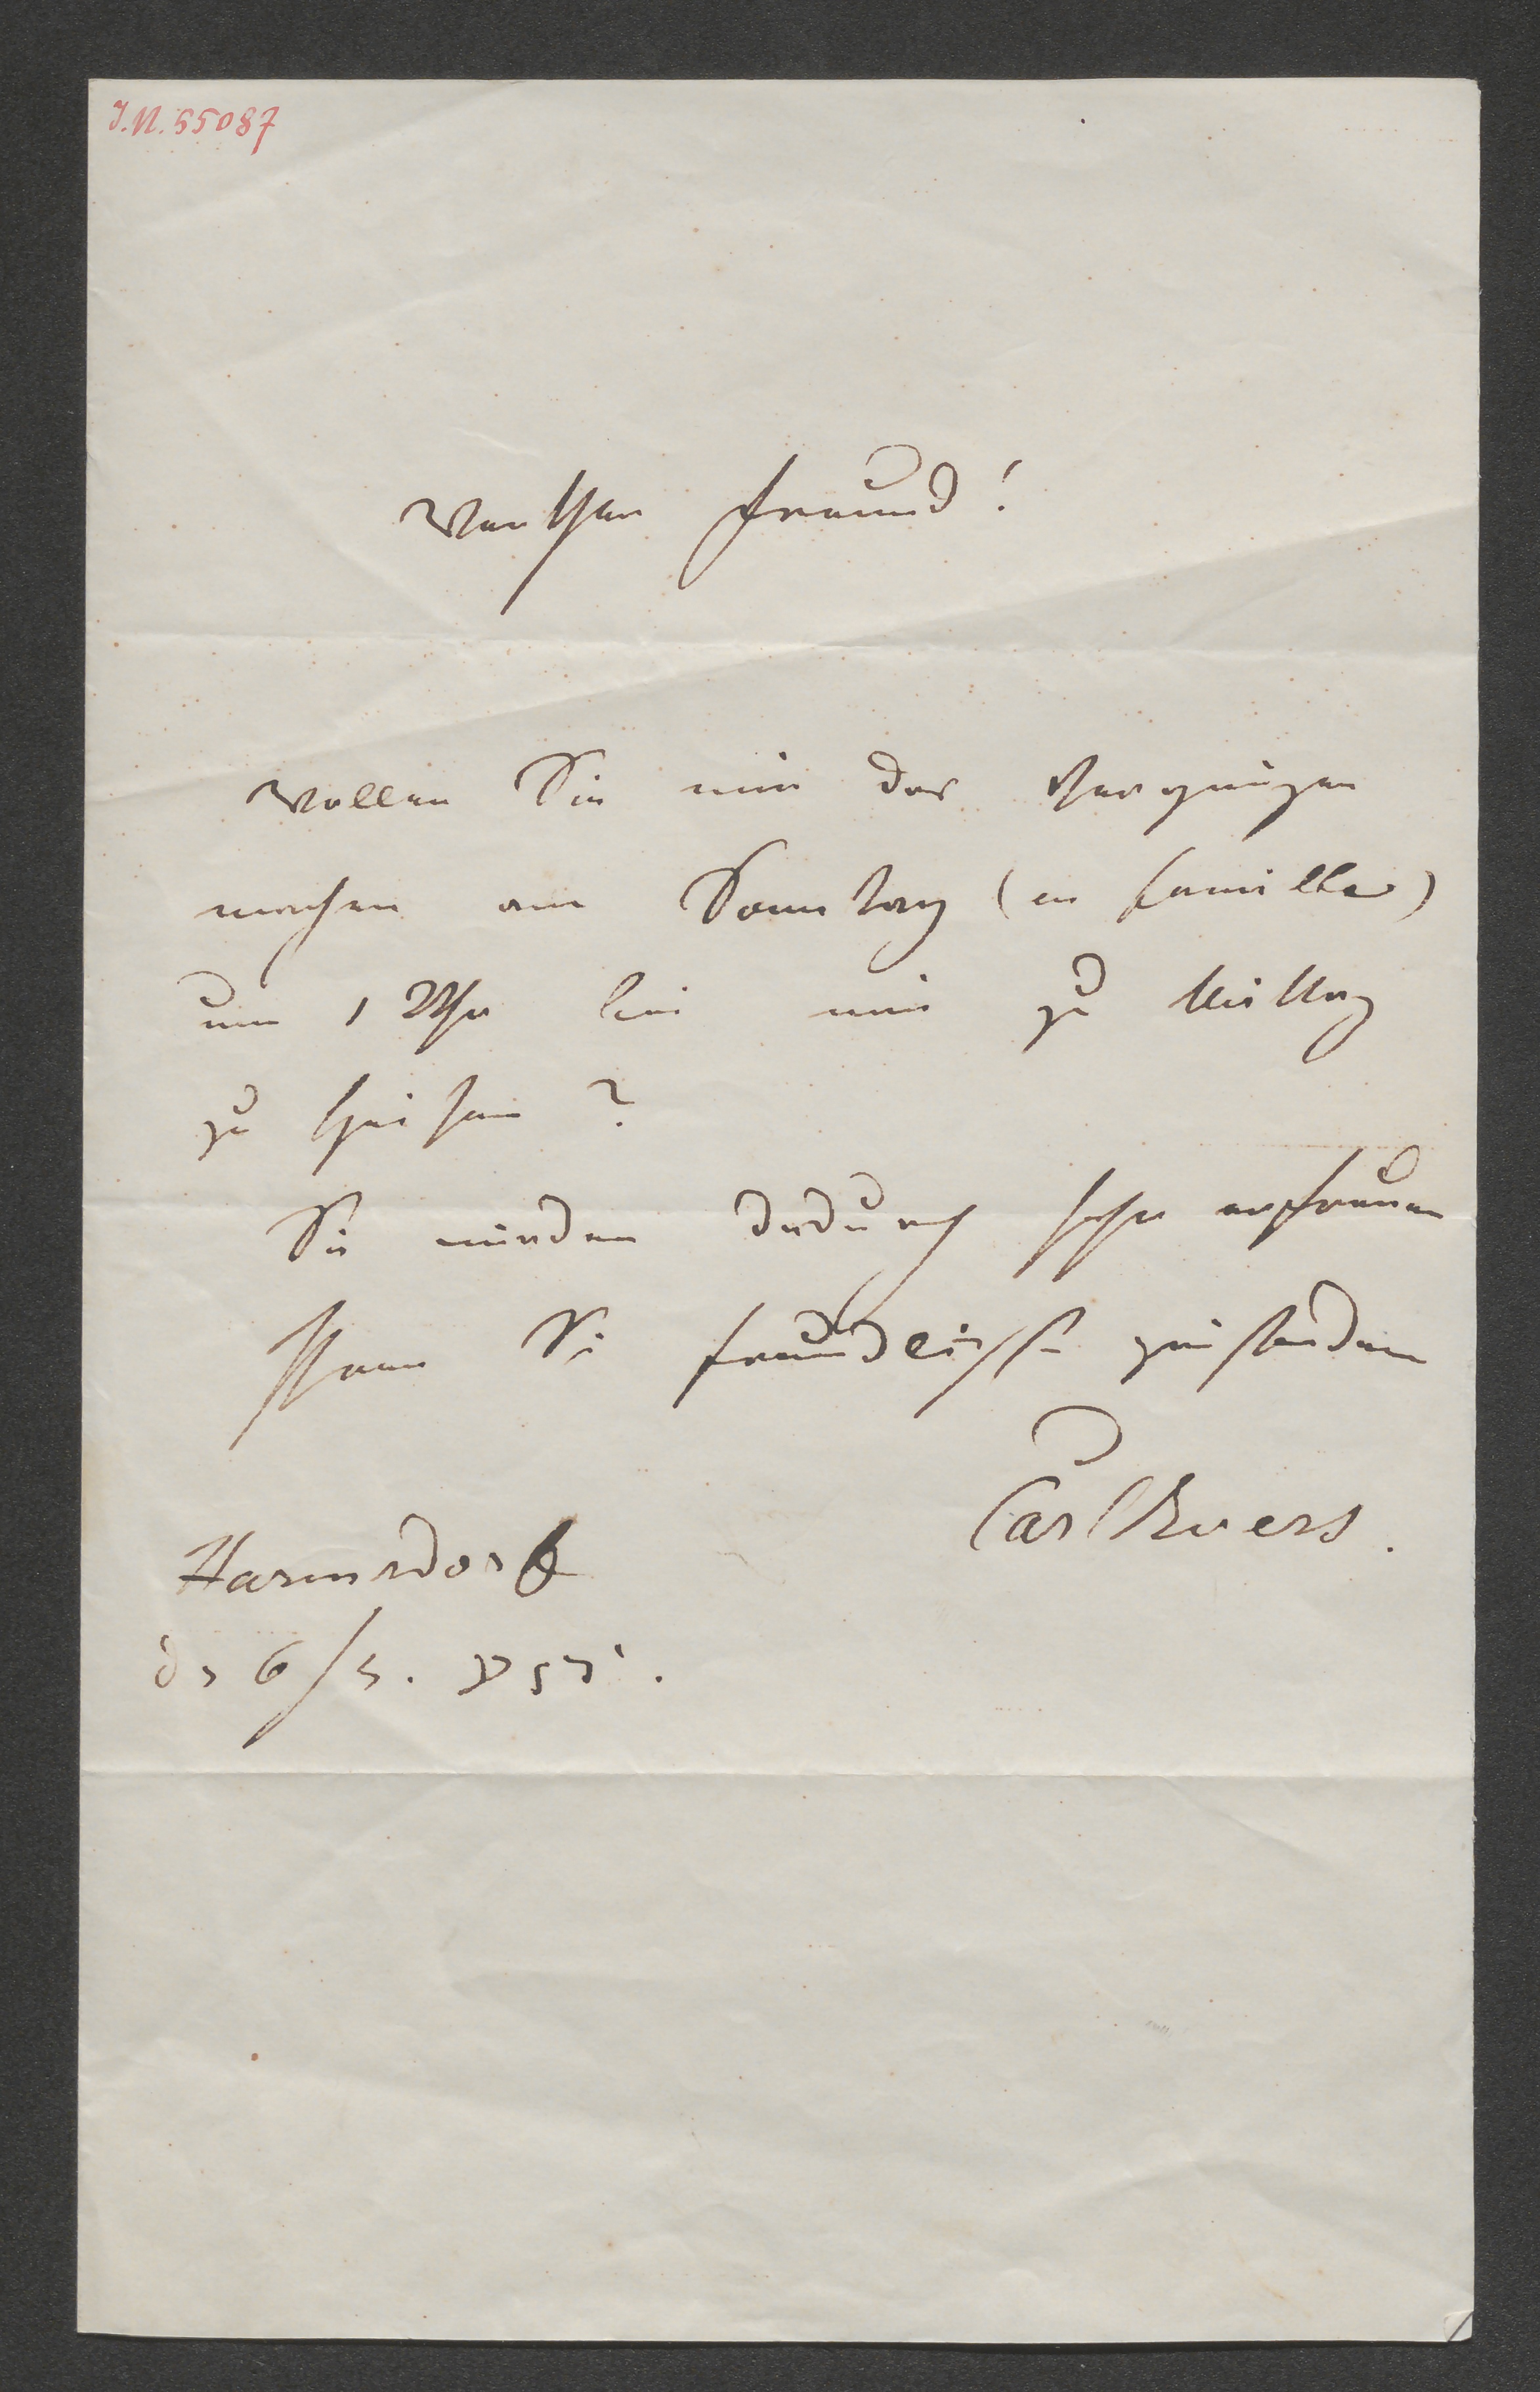 J.N. 55087
Werther Freund!
Wollen Sie mir das Vergnügen
machen am Sonntag (en famille)
um 1 Uhr bei mir zu Mittag
zu speisen?
Sie würden dadurch sehr erfreuen
Ihren Sie freundlichst grüßenden
Carl Evers.
Harmsdorf
6/5.